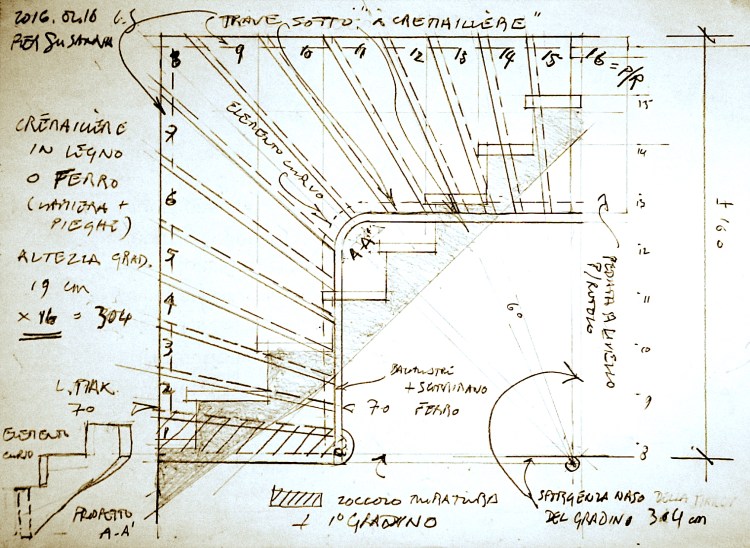 2016.02.16
PER SUSANNA
TRAVE SOTTO "à CREMAILLÈRE"
8 9 10 11 12 13 14 15 16 = P/R
CREMAILLÈRE
IN LEGNO
O FERRO
(LAMIERA +
PIEGHE)
ALTEZZA GRAD.
19 cm
× 16 = 304
7
6
5
4
3
2
1
ELEMENTO CURVO
A-A'
15
14
13
12
11
10
9
8
160
PEDATA A LIVELLO
6°
L. MAX.
70
70
+
FERRO
ELEMENTO
CURVO
PROSPETTO
A-A'
ZOCCOLO MURATURA
+ 1° GRADINO
NASO
DEL GRADINO 304 cm